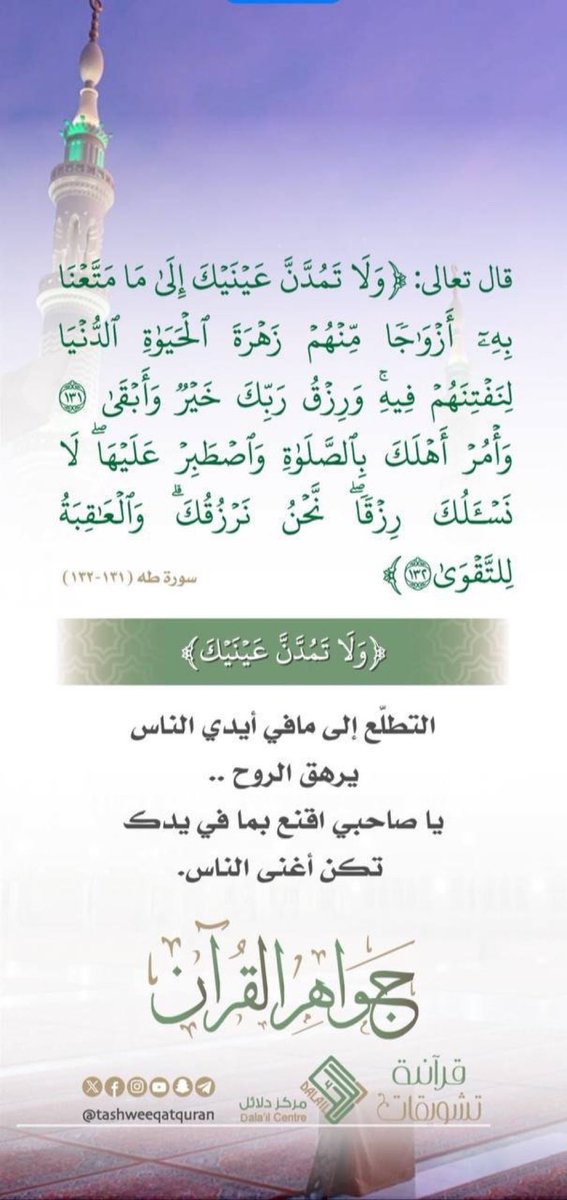 قال تعالى: ﴿وَلَا تَمُدَّنَّ عَيۡنَيۡكَ إِلَىٰ مَا مَتَّعۡنَا
بِهِۦٓ أَزۡوَٰجٗا مِّنۡهُمۡ زَهۡرَةَ ٱلۡحَيَوٰةِ ٱلدُّنۡيَا
لِنَفۡتِنَهُمۡ فِيهِۚ وَرِزۡقُ رَبِّكَ خَيۡرٞ وَأَبۡقَىٰ ١٣١
وَأۡمُرۡ أَهۡلَكَ بِٱلصَّلَوٰةِ وَٱصۡطَبِرۡ عَلَيۡهَاۖ لَا
نَسۡـَٔلُكَ رِزۡقٗاۖ نَّحۡنُ نَرۡزُقُكَۗ وَٱلۡعَٰقِبَةُ
لِلتَّقۡوَىٰ ١٣٢﴾ سورة طه (١٣١-١٣٢)
﴿وَلَا تَمُدَّنَّ عَيۡنَيۡكَ﴾
التطلّع إلى مافي أيدي الناس
يرهق الروح ..
يا صاحبي اقنع بما في يدك
تكن أغنى الناس.
جواهر القرآن
قرآنية
تشويقات
DALAIL
مركز دلائل
Dala'il Centre
@tashweeqatquran